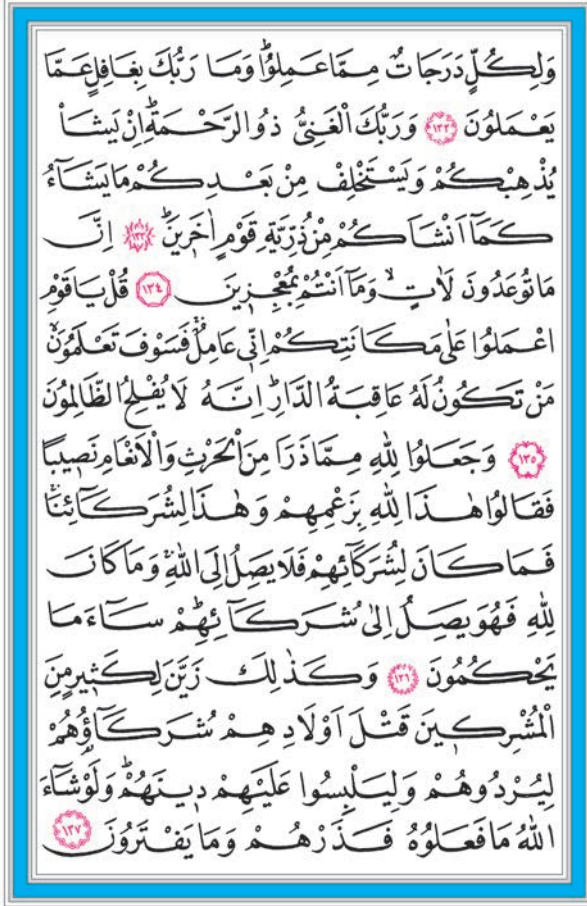 وَلِكُلٍّ دَرَجَاتٌ مِمَّا عَمِلُواۜ وَمَا رَبُّكَ بِغَافِلٍ عَمَّا
يَعْمَلُونَ ﴿١٣٢﴾ وَرَبُّكَ الْغَنِيُّ ذُو الرَّحْمَةِۜ اِنْ يَشَأْ
يُذْهِبْكُمْ وَيَسْتَخْلِفْ مِنْ بَعْدِكُمْ مَا يَشَٓاءُ
كَمَٓا اَنْشَاَكُمْ مِنْ ذُرِّيَّةِ قَوْمٍ اٰخَر۪ينَۜ ﴿١٣٣﴾ اِنَّ
مَا تُوعَدُونَ لَاٰتٍۙ وَمَٓا اَنْتُمْ بِمُعْجِز۪ينَ ﴿١٣٤﴾ قُلْ يَا قَوْمِ
اعْمَلُوا عَلٰى مَكَانَتِكُمْ اِنّ۪ي عَامِلٌۚ فَسَوْفَ تَعْلَمُونَۙ
مَنْ تَكُونُ لَهُ عَاقِبَةُ الدَّارِۜ اِنَّهُ لَا يُفْلِحُ الظَّالِمُونَ
﴿١٣٥﴾ وَجَعَلُوا لِلّٰهِ مِمَّا ذَرَاَ مِنَ الْحَرْثِ وَالْاَنْعَامِ نَص۪يبًا
فَقَالُوا هٰذَا لِلّٰهِ بِزَعْمِهِمْ وَهٰذَا لِشُرَكَٓائِنَاۚ
فَمَا كَانَ لِشُرَكَٓائِهِمْ فَلَا يَصِلُ اِلَى اللّٰهِۚ وَمَا كَانَ
لِلّٰهِ فَهُوَ يَصِلُ اِلٰى شُرَكَٓائِهِمْۜ سَٓاءَ مَا
يَحْكُمُونَ ﴿١٣٦﴾ وَكَذٰلِكَ زَيَّنَ لِكَث۪يرٍ مِنَ
الْمُشْرِك۪ينَ قَتْلَ اَوْلَادِهِمْ شُرَكَٓاؤُ۬هُمْ
لِيُرْدُوهُمْ وَلِيَلْبِسُوا عَلَيْهِمْ د۪ينَهُمْۜ وَلَوْ شَٓاءَ
اللّٰهُ مَا فَعَلُوهُ فَذَرْهُمْ وَمَا يَفْتَرُونَ ﴿١٣٧﴾